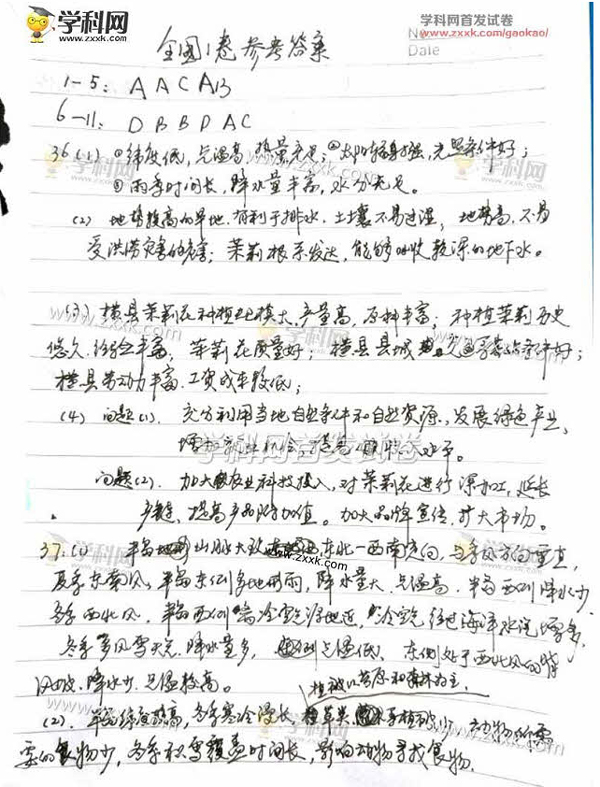 学科网
www.zxxk.com
学科网首发试卷
www.zxxk.com/gaokao/
No
Date
全国1卷参考答案
1-5: A A C A B
6-11: D B B D A C
36(1) ①纬度低,气温高,热量充足;②太阳辐射强,光照条件好;
③雨季时间长,降水量丰富,水分充足。
(2) 地势较高的旱地,有利于排水,土壤不易过湿,地势高,不易
受洪涝灾害的危害;茉莉根系发达,能够吸收较深的地下水。
(3) 横县茉莉花种植规模大,产量高,原料丰富;种植茉莉历史
悠久,经验丰富,茉莉花质量好;横县县城
横县劳动力丰富,工资成本较低;
(4) 问题(1). 充分利用当地自然条件和自然资源,发展绿色产业,
增加就业机会,提高
学科网首发试卷
问题(2). 加大农业科技投入,对茉莉花进行深加工,延长
产业链,提高产品附加值。加大品牌宣传,扩大市场。
37:(1) 半岛山脉大致东北—西南走向,与季风方向垂直,
夏季东南风,半岛东侧多地形雨,降水量大,气温高,半岛西侧降水少
冬季西北风,半岛西侧离冷空气源地近,冷空气经过海洋水汽增多,
冬季多风雪天气,降水量多,气温低、东侧处于西北风的背
风坡,降水少,气温较高。
植被以苔原和森林为主,
(2). 半岛纬度较高,冬季寒冷漫长,动物所需
要的食物少,冬季积雪覆盖时间长,影响动物寻找食物.